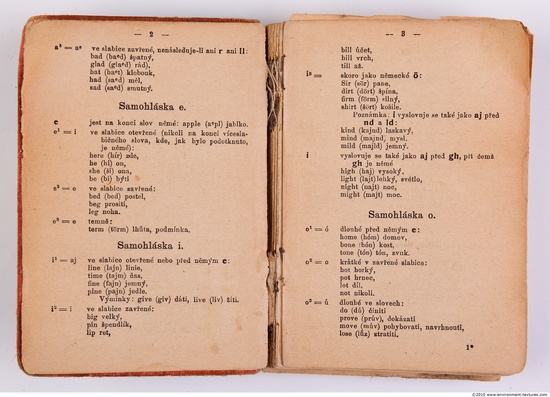 — 2 —
a³ = aᵉ ve slabice zavřené, nenásleduje-li ani r ani ll:
bad (baᵉd) špatný,
glad (glaᵉd) rád,
hat (haᵉt) klobouk,
had (saᵉd) měl,
sad (saᵉd) smutný.
Samohláska e.
e jest na konci slov němé: apple (aᵉpl) jablko.
e¹ = i ve slabice otevřené (nikoli na konci vícesla-
bičného slova, kde, jak bylo podotknuto,
je němé):
here (hír) zde,
he (hí) on,
she (ší) ona,
be (bí) býti
e² = e ve slabice zavřené:
bed (bed) postel,
beg prositi,
leg noha.
e³ = e temně:
term (törm) lhůta, podmínka.
Samohláska i.
i¹ = aj ve slabice otevřené nebo před němým e:
line (lajn) linie,
time (tajm) čas,
fine (fajn) jemný,
pine (pajn) jedle.
Výminky: give (giv) dáti, live (liv) žíti.
i² = i ve slabice zavřené:
big velký,
pin špendlík,
lip ret,
— 3 —
bill účet,
hill vrch,
till až.
i³ = skoro jako německé ö:
Sir (sör) pane,
dirt (dört) špína,
firm (förm) silný,
shirt (šört) košile.
Poznámka: i vyslovuje se také jako aj před
nd a ld:
kind (kajnd) laskavý,
mind (majnd) mysl,
mild (majld) jemný.
i vyslovuje se také jako aj před gh, při čemž
gh je němé
high (haj) vysoký,
light (lajt) lehký, světlo,
night (najt) noc,
might (majt) moc.
Samohláska o.
o¹ = ó dlouhé před němým e:
home (hóm) domov,
bone (bón) kost,
tone (tón) tón, zvuk.
o² = o krátké v zavřené slabice:
hot horký,
pot hrnec,
lot díl,
not nikoli.
o³ = ú dlouhé ve slovech:
do (dú) činiti
prove (prúv), dokázati
move (múv) pohybovati, navrhnouti,
lose (lúz) ztratiti.
1*
©2010 www.environment-textures.com